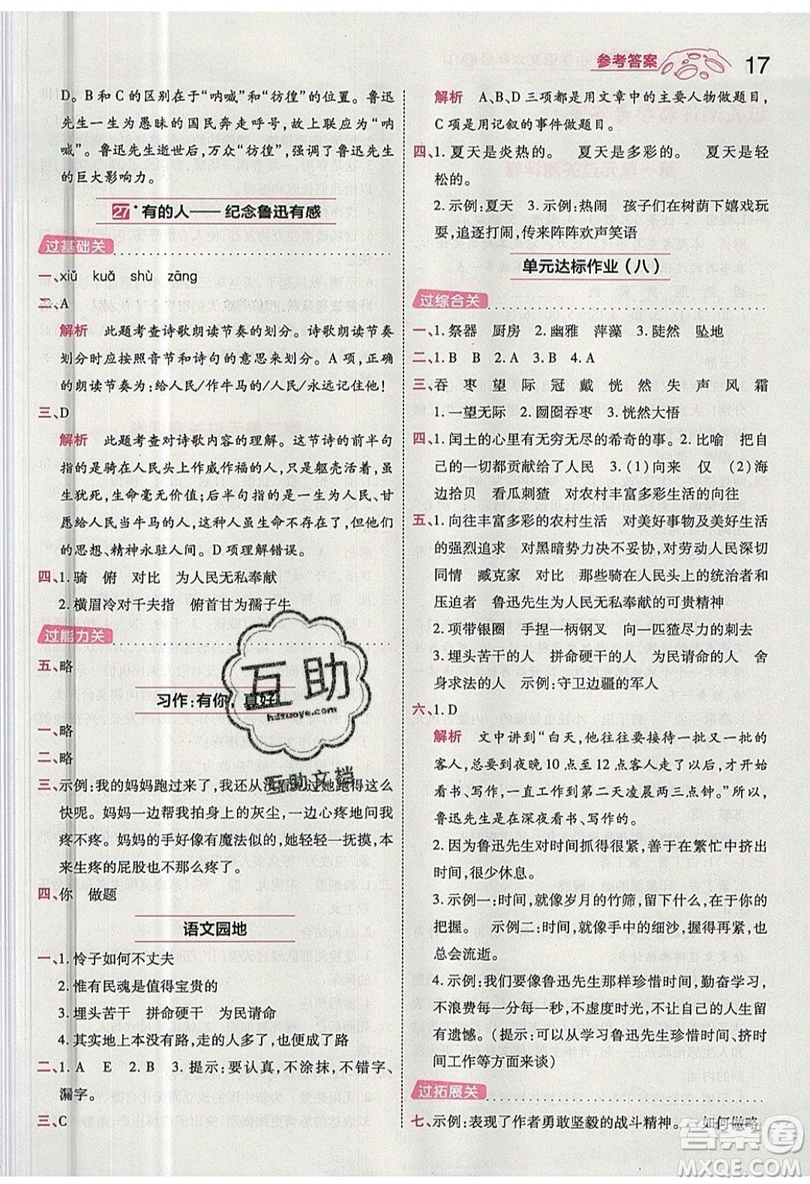 参考答案
17
D。B和C的区别在于“呐喊”和“彷徨”。鲁迅
先生一生为愚昧的国民奔走呼号,故应用“呐
喊”。鲁迅先生逝世,万众“彷徨”,强调了鲁迅先生
的巨大影响力。
27*有的人——纪念鲁迅有感
过基础关
一、xiǔ kuǎ shù zāng
二、A
解析 此题考查诗歌朗读节奏的划分。诗歌朗读节奏
划分时应按照音节和诗句的意义来划分。A项,正确
的朗读节奏为:给人民/作牛马的/人民/永远记住他!
三、D
解析 此题考查对诗歌内容的理解。这节诗的前半句
指的是骑在人民头上作威作福的人,就像行尸走肉,虽
然活着,生命毫无价值;后半句指的是为了人民,甘
愿给人民当牛马的人,这些人虽然失去了生命,但他们
的思想、精神永驻人间。D项理解错误。
四、1. 骑 俯 对比 为人民无私奉献
2. 横眉冷对千夫指 俯首甘为孺子牛
过能力关
五、略
习作:有你,真好!
一、略
二、略
三、示例:我的妈妈跑过来了,我却还从
疼呢。妈妈一边帮我拍身上的灰尘,一边心疼地问我
疼不疼。妈妈的手好像有魔法似的,她轻轻一抚摸,本
来疼痛的屁股也不怎么疼了。
四、你 做题
语文园地
一、1. 怜子如何不丈夫
2. 惟有民魂是值得宝贵的
3. 埋头苦干 拼命硬干 为民请命
4. 其实地上本没有路,走的人多了,也便成了路
二、1. A E 2. B 3. 提示:要认真,不涂抹,不错字、
漏字。
三、C
解析 A、B、D三项都是用文章中的主要人物做题目,
C项是用记叙的事件做题目。
四、1. 夏天是炎热的。 夏天是多彩的。 夏天是轻
松的。
2. 示例:夏天 3. 示例:热闹 孩子们在树荫下嬉戏玩
耍,追逐打闹,传来阵阵欢声笑语
单元达标作业(八)
过综合关
一、1. 祭器 厨房 2. 幽雅 萍藻 3. 陡然 坠地
二、1. B B 2. A 3. B 4. A
三、吞 枣 望 际 冠 戴 恍 然 失 声 风 霜
1. 一望无际 2. 囫囵吞枣 3. 恍然大悟
四、1. 闰土的心里有无穷无尽的希奇的事。 2. 比喻 把自
己的一切都贡献给了人民 3. (1)向来 仅 (2)海
边拾贝 看瓜刺猹 对农村丰富多彩生活的向往
五、1. 向往丰富多彩的农村生活 对美好事物及美好生活
的强烈追求 对黑暗势力的仇视,对劳动人民深切的
同情 臧克家 遗臭万年 那些骑在人民头上的
压迫者 鲁迅先生为人民无私奉献的可贵精神
2. 项带银圈 手捏一柄钢叉 向一匹猹尽力的刺去
3. 埋头苦干的人 拼命硬干的人 为民请命的人 舍
身求法的人 示例:守卫边疆的军人
六、1. D
解析 文中讲到“白天,他要接待一批又一批的
客人,要到夜晚10点至12点客人走了以后,才开始
看书、写作,一直工作到第二天凌晨两三点钟。”所以
鲁迅先生是在深夜看书、写作的。
2. 因为鲁迅先生对时间抓得很紧,善于在繁忙中挤时
间,很少休息。
3. 示例1:时间,就像岁月的竹筛,留给你的在于你的
把握。 示例2:时间,就像手中的细沙,不经意间,总
会流逝。
4. 示例:我们要像鲁迅先生那样珍惜时间,勤奋学习,
不浪费每一分每一秒,抓紧时间实现理想,不让自己留
有遗憾。(提示:可以从学习鲁迅先生珍惜时间、挤时
间工作等方面来谈)
过拓展关
七、示例:表现了作者勇敢坚毅的战斗精神。 如何做略
互助
hdzuoye.com
互助文档
答案圈
MXQE.COM